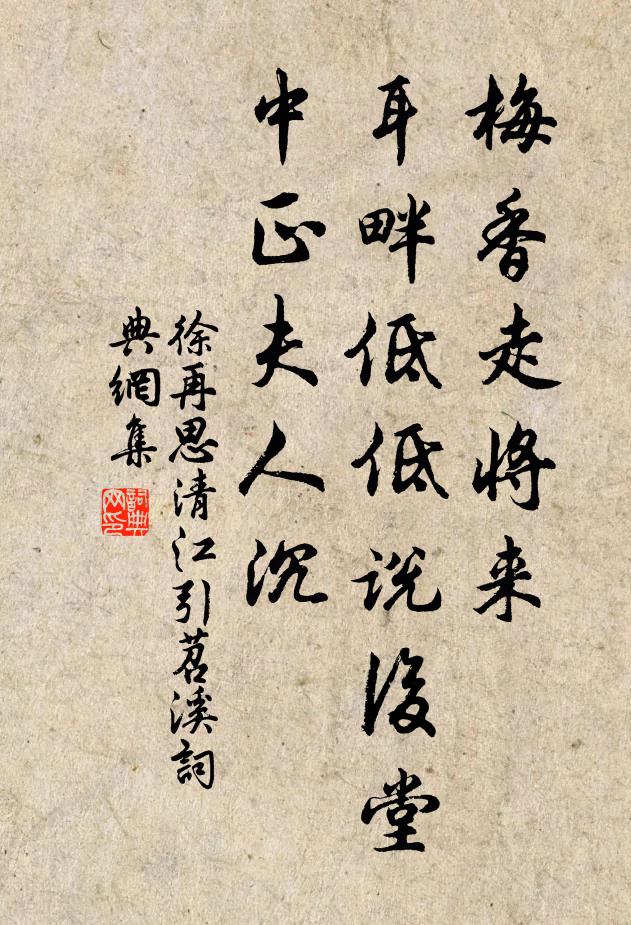 梅香走将来
耳畔低低说後堂
中正夫人沉
徐再思清江引苕溪詞
典網集
詞典
网印